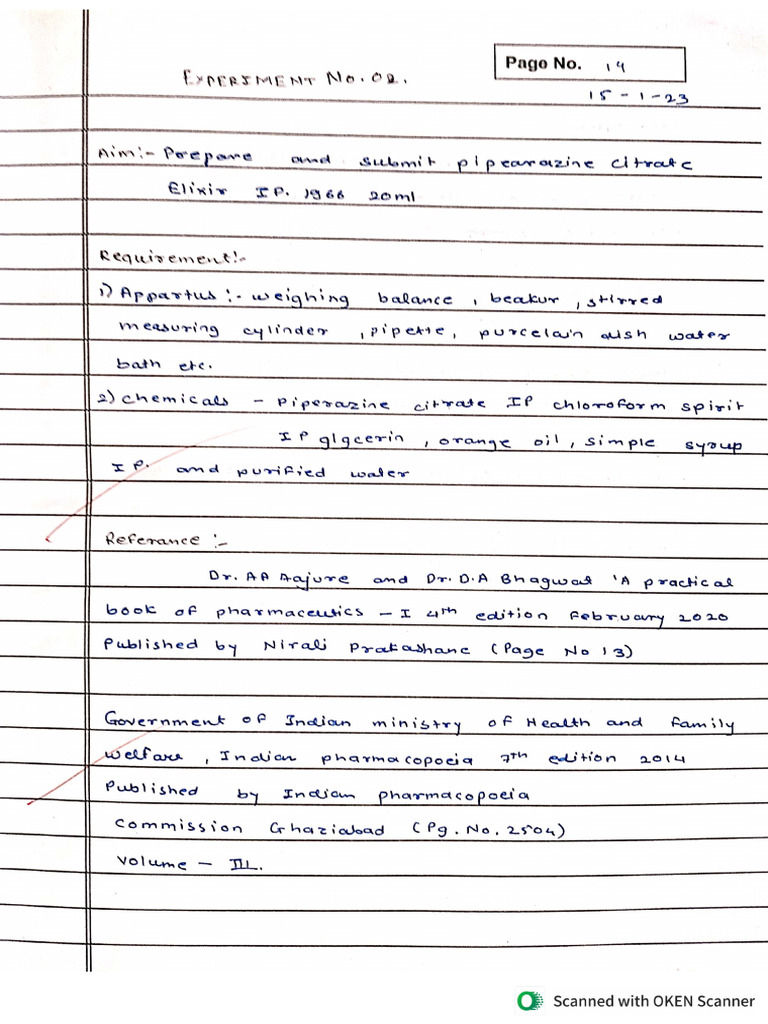 Page No. 14
EXPERIMENT NO. 02.
15-1-23
Aim:- Prepare and submit pipearazine citrate
Elixir IP. 1966 20ml
Requirement:-
1) Appartus:- weighing balance, beakur, stirred
measuring cylinder, pipette, purcelain dish water
bath etc.
2) chemicals - piperazine citrate IP chloroform spirit
IP glgcerin, orange oil, simple syoup
IP. and purified water
Referance:-
Dr. AA Aajure and Dr. D.A Bhagwat 'A practical
book of pharmaceutics - I 4th edition february 2020
Published by Nirali Prakashane (Page No 13)
Government of Indian ministry of Health and family
welfare, Indian pharmacopoeia 7th edition 2014
Published by Indian pharmacopoeia
Commission Ghaziabad (Pg. No. 2504)
volume - III.
Scanned with OKEN Scanner